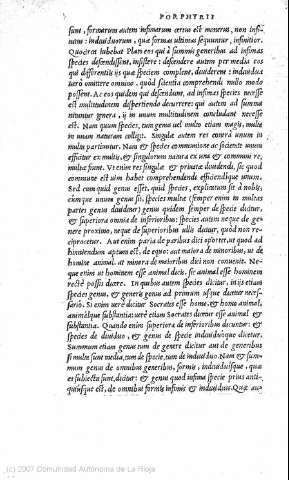 PORPHYRII
sunt, formarum autem infimarum certus est numerus, non infi-
nitus: indiuiduorum, quæ formas ultimas sequuntur, infinitior.
Quocirca iubebat Plato eos qui à summis generibus ad infimas
species descendissent, insistere: descendere autem per media eos
qui differentiis iis quæ speciem complent, diuiderent: indiuidua
uerò omittere omnino, quòd scientia comprehendi nullo modo
possent. Ac eos quidem qui descendunt, ad infimas species necesse
est multitudinem dispartiendo decurrere: qui autem ad summa
nituntur genera, ij in unum multitudinem concludant necesse
est. Nam quum species, tum genus uel multo etiam magis, multa
in unam naturam colligit. Singula autem res contrà unum in
multa partiuntur. Nam & species communione ac societate unum
efficitur ex multis, & singulorum natura ex uno & communi re,
multa sunt. Vt enim res singula & priuata diuidendi, sic quod
commune est uim habet comprehendendi efficiendique unum.
Sed cum quid genus esset, quid species, explicatum sit à nobis,
cumque unum genus sit, species multæ (semper enim in multas
partes genus diuiditur) genus quidem semper de specie dicitur,
& superiora omnia de inferioribus: species autem neque de ge-
nere proximo, neque de superioribus ullis dicitur, quòd non re-
ciprocetur. Aut enim paria de paribus dici oportet, ut quod ad
hinniendum aptum est, de equo: aut maiora de minoribus, ut de
homine animal. at minora de maioribus dici non conuenit. Ne-
que enim ut hominem esse animal dicis, sic animal esse hominem
rectè possis dicere. In quibus autem species dicitur, in iis etiam
species genus, & generis genus ad primum usque dicatur neces-
sariò. Si enim uerè dicitur Socrates esse homo, & homo animal,
animalque substantia: uerè etiam Socrates dicetur esse animal &
substantia. Quando enim superiora de inferioribus dicuntur: &
species de diuiduo, & genus de specie indiuiduoque dicetur.
Summum etiam genus tum de genere dicitur aut de generibus
si multa sunt media, tum de specie, tum de indiuiduo. Nam & sum-
mum genus de omnibus generibus, formis, indiuiduisque, quæ
ei subiecta sunt, dicitur: & genus quod infima specie prius anti-
quiusque est, de omnibus formis infimis & indiuiduis. Quæ au-
(c) 2007 Comunidad Autónoma de La Rioja